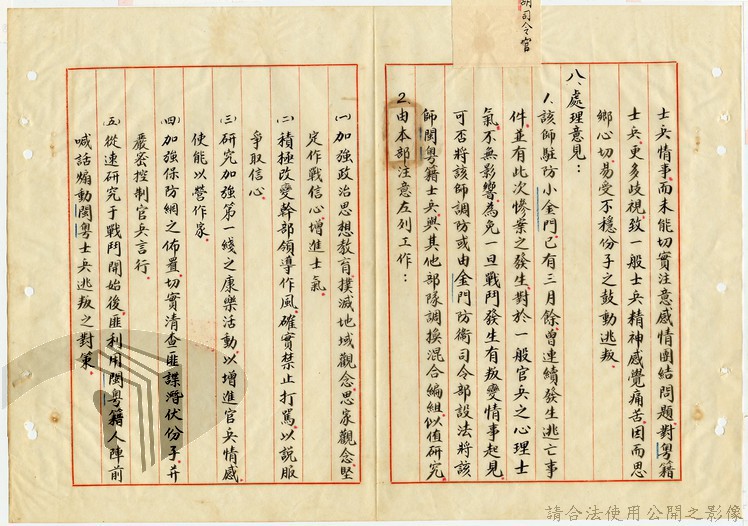 胡司令官
士兵情事而未能切實注意感情團結問題對粵籍
士兵更多歧視致一般士兵精神感覺痛苦因而思
鄉心切易受不穩份子之鼓動逃叛
八、處理意見：
1.該師駐防小金門已有三月餘曾連續發生逃亡事
件並有此次慘案之發生對於一般官兵之心理士
氣不無影響為免一旦戰鬥發生有叛變情事起見
可否將該師調防或由金門防衛司令部設法將該
師閩粵籍士兵與其他部隊調換混合編組似值研究
2.由本部注意左列工作：
㈠加強政治思想教育撲滅地域觀念思家觀念堅
定作戰信心增進士氣
㈡積極改變幹部領導作風確實禁止打罵以說服
爭取信心
㈢研究加強第一綫之康樂活動以增進官兵情感
使能以營作家
㈣加強保防網之佈置切實清查匪諜潛伏份子并
嚴密控制官兵言行
㈤從速研究于戰鬥開始後匪利用閩粵籍人陣前
喊話煽動閩粵士兵逃叛之對策
請合法使用公開之影像